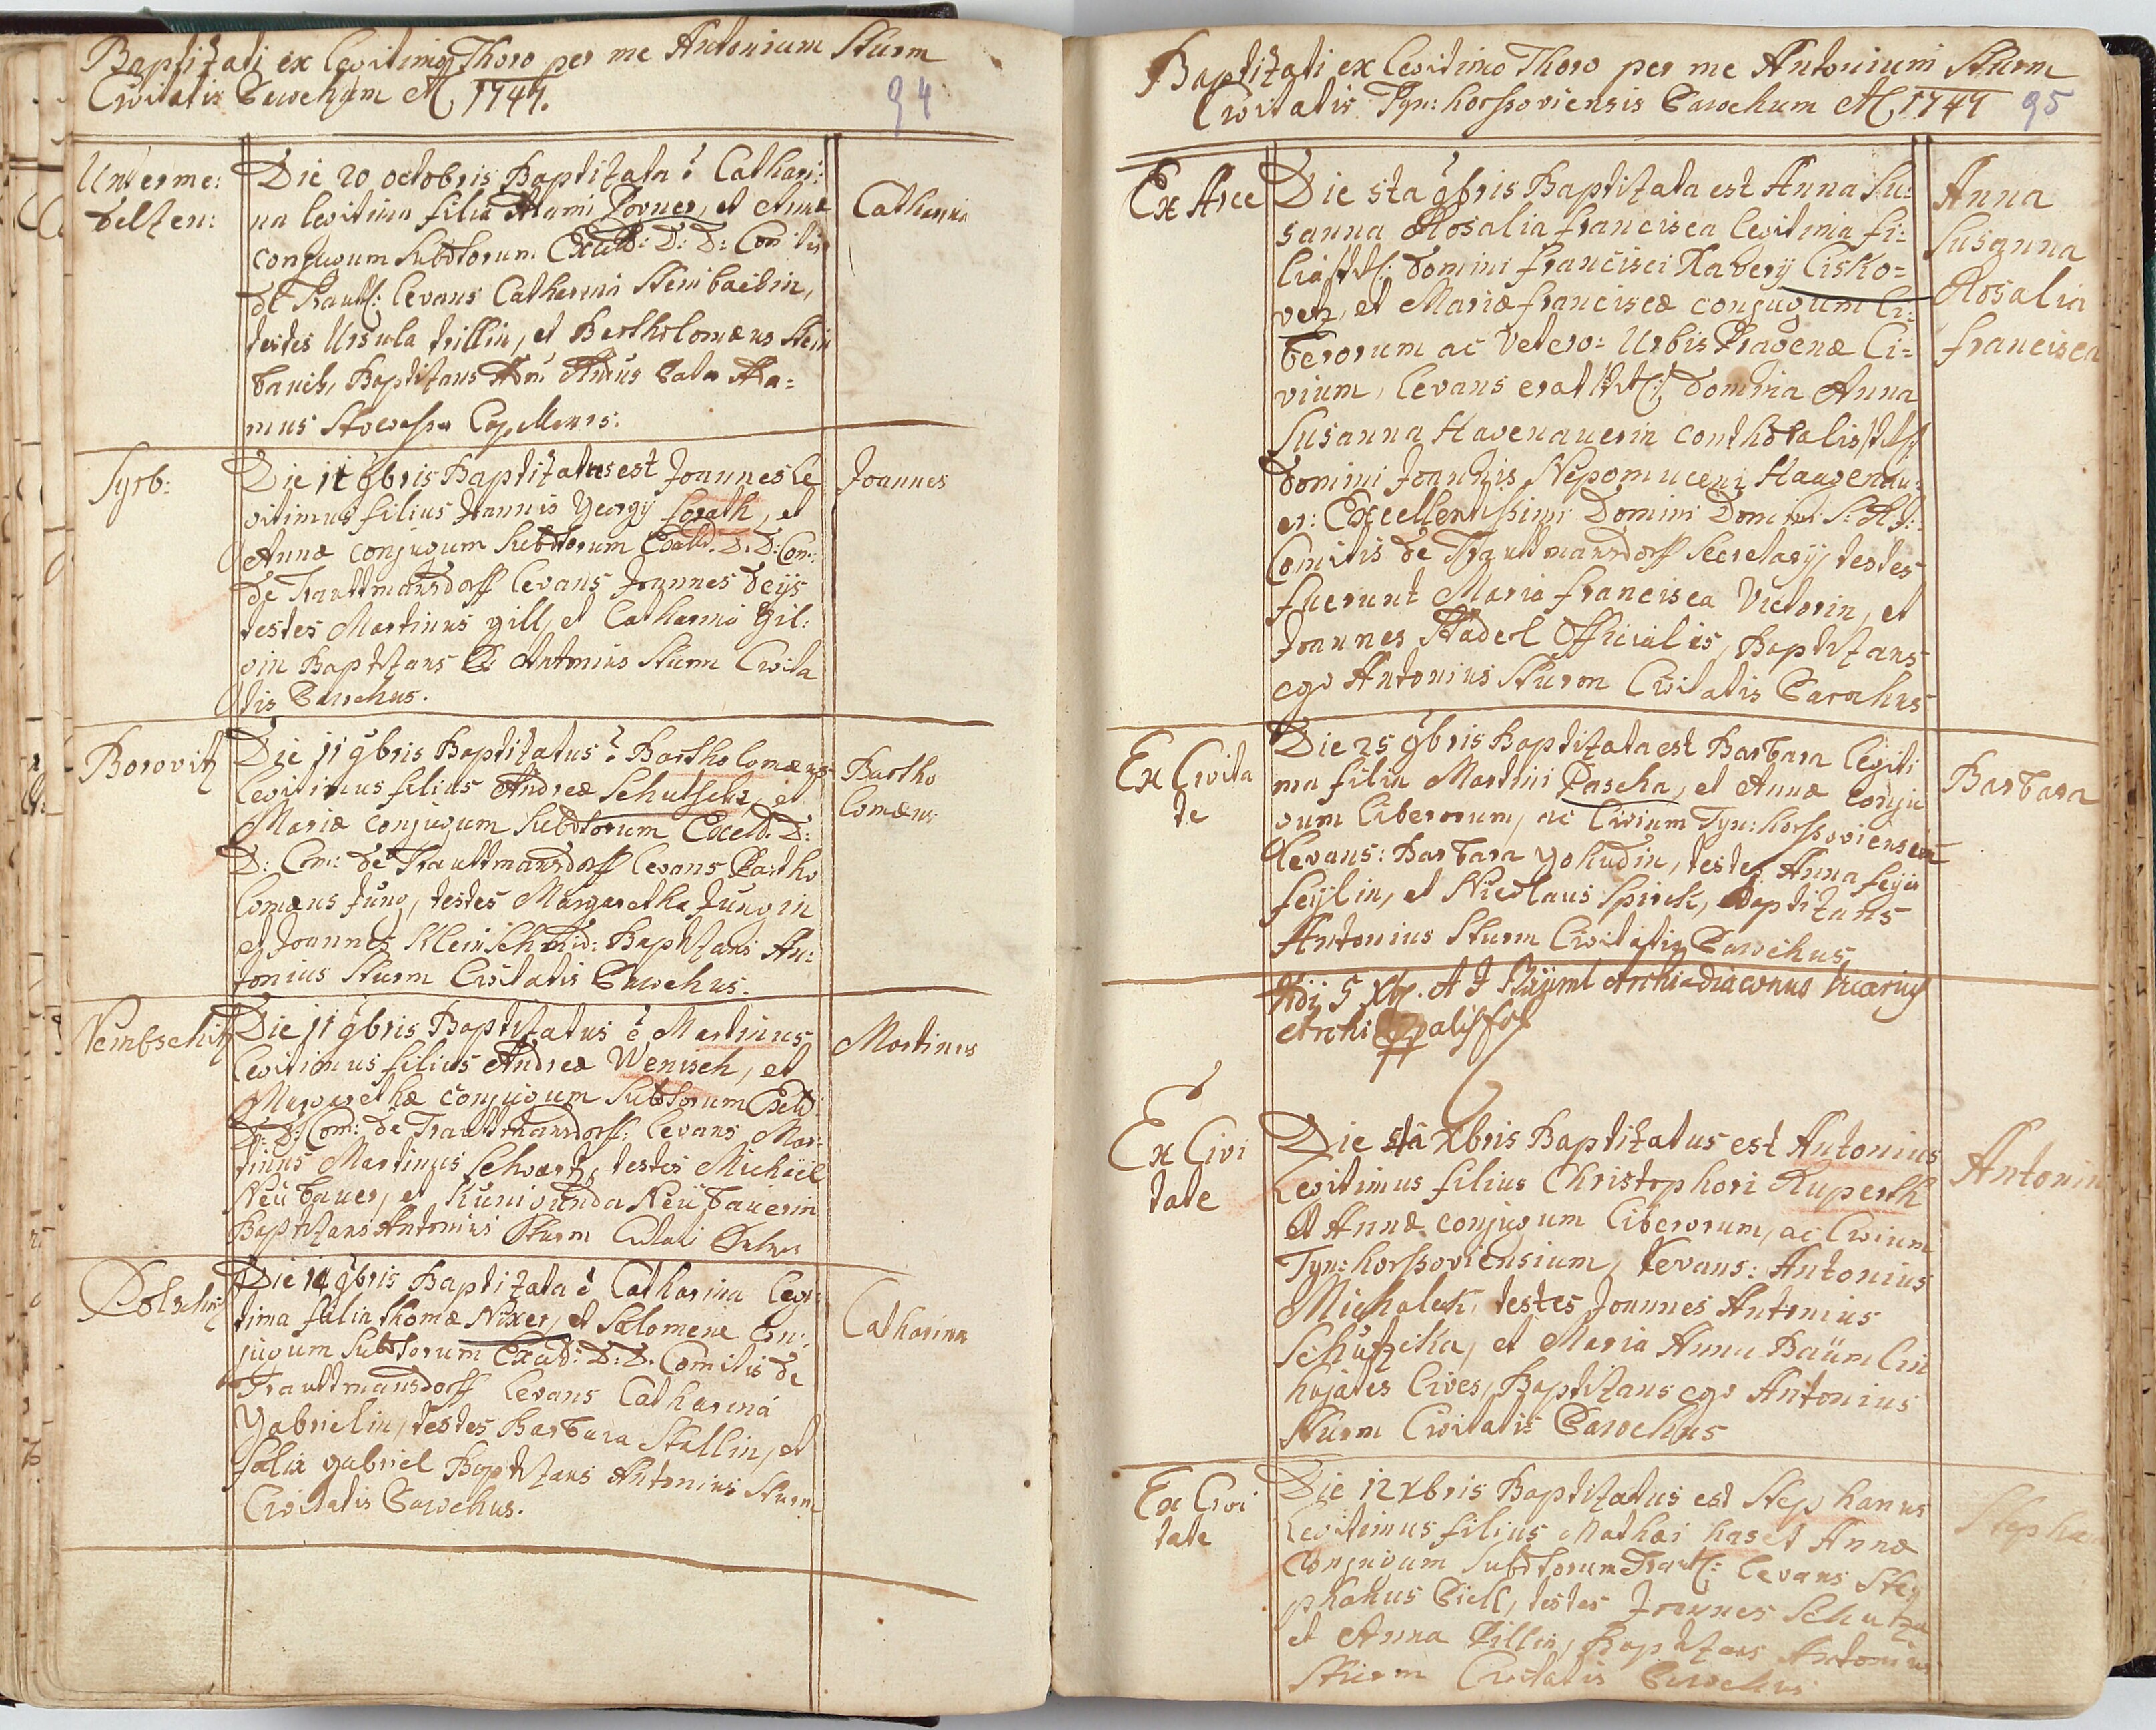 Baptizati ex legitimo Thoro per me Antonium Sturm
Civitatis Parochum A 1747.
94
Unterme:
delzen:
Die 20 octobris Baptizata ē Cathari:
na legitima filia Adami Zorner, et Annæ
conjugum Subdtorum Excell: D: D: Comitis
de Trautt: levans Catharina Steinbachin,
testes Ursula trillin, et Bartholomæus Stein
bach, Baptizans Adm
mus
Catharina
Syrb:
Die 11 9bris Baptizatus est Joannes le
gitimus filius Joannis Georgy forath, et
Annæ conjugum Subdtorum Excell. D. D: Com:
de Trauttmansdorff levans Joannes Deÿs
testes Martinus gill, et Catharina Gil:
lin Baptizans P. Antonius Sturm Civita
tis Parochus.
Joannes
Borovitz
Die 11 9bris Baptizatus ē Bartholomæus
legitimus filius Andreæ Schutsch, et
Mariæ conjugum Subdtorum Excell: D:
D: Com: de Trauttmansdorff levans Bartho
lomæus Jung, testes Margaretha Jungin
et Joannes Kleinschmid: Baptizans An:
tonius Sturm Civitatis Parochus.
Bartho
lomæus
Nembschitz
Die 11 9bris Baptizatus ē Martinus
legitimus filius Andreæ Wenisch, et
Margarethæ conjugum Subdtorum Excell:
D: D: Com: de Trauttmansdorff: levans Mar:
tinus Martinus Schwartz, testes Michäel
Neübauer, et Kunigunda Neübauerin
Baptizans Antonius Sturm
Martinus
Dolschitz
Die 14 9bris Baptizata ē Catharina legi:
tima filia thomæ Nixer, et Salomene Con:
jugum Subdtorum Excell: D: D. Comitis de
Trauttmansdorff levans Catharina
Gabrielin, testes Barbara Stallin, et
Felix gabriel Baptizans Antonius Sturm
Civitatis Parochus.
Catharina
Baptizati ex legitimo Thoro per me Antonium Sturm
Civitatis Tyn: horssoviensis Parochum A 1747
95
Ex Arce
Die 5ta 9bris Baptizata est Anna Su:
sanna Rosalia francisca legitima fi:
lia Domini francisci Xavery Cisko=
vetz, et Mariæ franciscæ conjugum li:
berorum ac Vetero: Urbis Pragenæ Ci=
vium, levans erat Domina Anna
Susanna Hagenauerin conthoralis
Domini Joannis Nepomuceni Haagenau:
er: Excellentissimi Domini Domini S: R: J:
Comitis de Trauttmansdorff Secretarÿ, testes
fuerunt Maria francisca Victorin, et
Joannes Stadel Officialis, Baptizans
ego Antonius Sturm Civitatis Parochus
Anna
Susanna
Rosalia
francisca
Ex Civita
te
Die 25 9bris Baptizata est Barbara legiti
ma filia Martini Pascha, et Annæ conju
gum liberorum, ac Civium Tyn: horssoviensium
levans: Barbara Gohudin, testes Anna
feÿlin, et Nicolaus Spirek, Baptizans
Antonius Sturm Civitatis Parochus
Barbara
5 Xbr. A J Baÿml Archi-diaconus Vicarius
Ex Civi
tate
Die 5ta Xbris Baptizatus est Antonius
Legitimus filius Christophori Ruperth
et Annæ conjugum liberorum, ac Civium
Tyn: horssoviensium, levans: Antonius
Michalek, testes Joannes Antonius
Schützcka, et Maria Anna Baümlin
hujates Cives, Baptizans ego Antonius
Sturm Civitatis Parochus
Antonius
Ex Civi
tate
Die 12 Xbris Baptizatus est Stephanus
Legitimus filius Mathæi has et Annæ
Conjugum Subdtorum Trautt: levans Ste
phanus Piell, testes Joannes Schutz
et Anna Pillin, Baptizans Antonius
Sturm Civitatis Parochus
Stepha